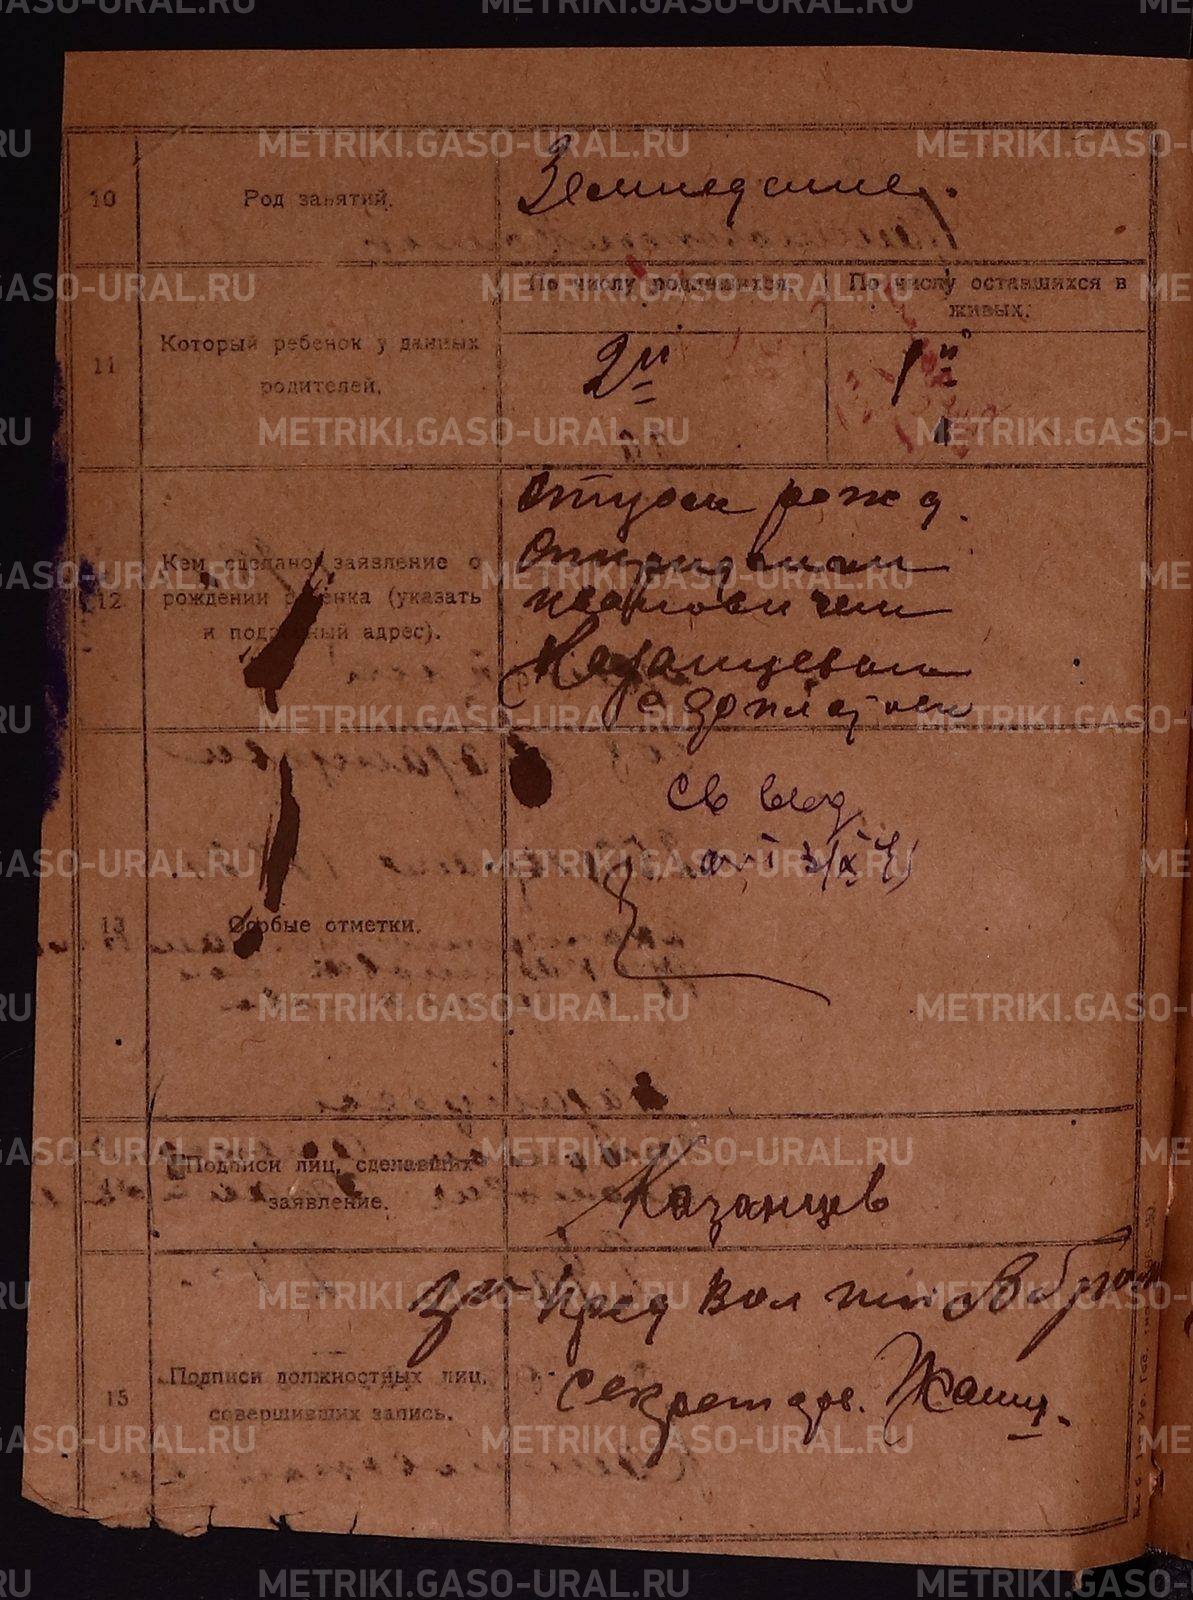 10
Род занятий.
Земледелие.
11
Который ребенок у данных
родителей.
По числу родившихся.
По числу оставшихся в
живых.
2й
1й
12
Кем сделано заявление о
рождении ребенка (указать
и подробный адрес).
отцом рожд.
Спиридоном
Ивановичем
Казанцевым
с
13
Особые отметки.
Св выд
Подписи лиц, сделавших
заявление.
Казанцев
15
Подписи должностных лиц,
совершивших запись.
Зв Пред Вол
Секретарь.
METRIKI.GASO-URAL.RU